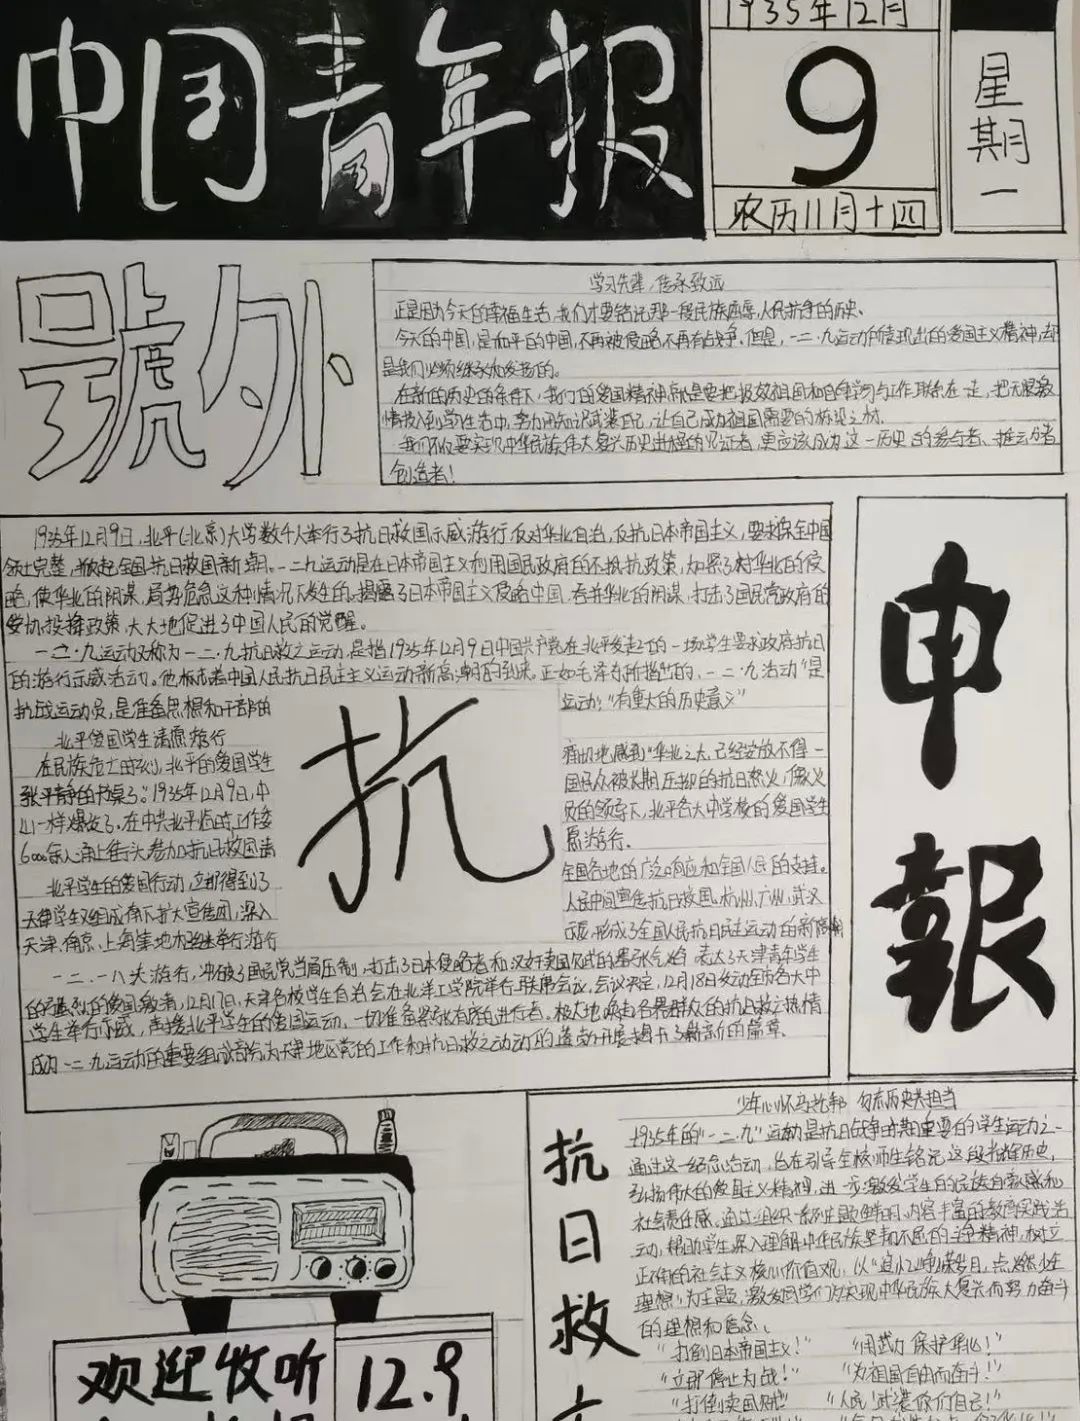 中国青年报
1935年12月
9
农历11月十四
星期一
號外
学习先辈,传承致远
正是因为今天的幸福生活,我们才要铭记那一段民族屈辱,人民抗争的历史、
今天的中国,是和平的中国,不再被侵略不再有战争。但是,一二·九运动所体现出的爱国主义精神,却
是我们必须继承和发扬的。
在新的历史的条件下,我们的爱国精神就是要把报效祖国和自身学习与工作联系在一起,把无限激
情投入到学生生活中,努力用知识武装自己,让自己成为祖国需要的栋梁之材.
我们不仅要实现中华民族伟大复兴历史进程的见证者,更应该成为这一历史的参与者、推动者
创造者!
1935年12月9日,北平(北京)大学数千人举行了抗日救国示威游行,反对华北自治,反抗日本帝国主义,要求保全中国
领土完整,掀起全国抗日救国新潮。一二九运动是在日本帝国主义利用国民政府的不抵抗政策,加紧了对华北的侵
略,使华北的阴谋,局势危急这种情况下发生的,揭露了日本帝国主义侵略中国,吞并华北的阴谋,打击了国民党政府的
妥协投降政策,大大地促进了中国人民的觉醒。
一二·九运动又称为一二·九抗日救亡运动,是指1935年12月9日中国共产党在北平发起的一场学生要求政府抗日
的游行示威活动。他标志着中国人民抗日民主主义运动新高潮的到来。正如毛泽东所指出的,一二·九活动"是
抗战运动员,是准备思想和干部的
运动;"有重大的历史意义"
北平爱国学生请愿游行
在民族危亡的时刻,北平的爱国学生
痛切地感到"华北之大,已经安放不得一
张平静的书桌了。"1935年12月9日,中
国民众被长期压抑的抗日怒火,像火
山一样爆发了。在中共北平临时工作委
员的领导下,北平各大中学校的爱国学生
6000余人涌上街头参加抗日救国请
愿游行。
北平学生的爱国行动,立即得到了
全国各地的广泛响应和全国人民的支持。
天津学生又组成南下扩大宣传团,深入
人民中间宣传抗日救国。杭州,广州,武汉
天津,南京,上海等地相继举行游行
示威,形成了全国人民抗日民主运动的新高潮
抗
一二·一八大游行,冲破了国民党当局压制,打击了日本侵略者和汉奸卖国政武的嚣张气焰 表达了天津青年学生
的强烈的爱国激情,12月17日,天津各校学生自治会在北洋工学院举行联席会议,会议决定,12月18日发动全市各大中
学生举行示威,声援北平学生的爱国运动,一切准备紧张有序的进行着。极大地唤起各界群众的抗日救亡热情
成为一二·九运动的重要组成部分,为天津地区党的工作和抗日救亡动动的蓬勃开展揭开了崭新的篇章.
申報
欢迎收听
12.9
抗日救
少年心怀乌托邦 勿忘历史共担当
1935年的"一二·九"运动是抗日战争时期重要的学生运动之一
通过这一纪念活动,旨在引导全校师生铭记这段光辉历史,
弘扬伟大的爱国主义精神,进一步激发学生的民族自豪感和
社会责任感。通过组织一系列主题鲜明、内容丰富的教育实践活
动,帮助学生深入理解中华民族坚韧不屈的斗争精神,树立
正确的社会主义核心价值观,以"追忆峥嵘岁月,点燃少年
理想"为主题,激发同学们为实现中华民族大复兴而努力奋斗
的理想和信念、
"打倒日本帝国主义!" "用武力保护华北!"
"立即停止内战!" "为祖国自由而奋斗!"
"打倒卖国贼!" "人民武装你们自己!"